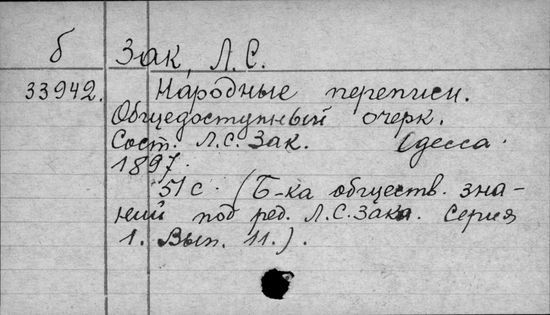 б Зак, Л.С.
33942. Народные переписи.
Общедоступный очерк.
Сост. Л.С. Зак. Одесса.
1897.
51 с. (Б-ка обществ. зна-
ний под ред. Л.С. Зака. Серия
1. Вып. 11.).